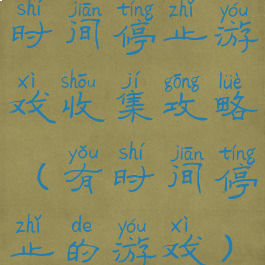 shí jiān tíng zhǐ yóu
时间停止游
xì shōu jí gōng lüè
戏收集攻略
yǒu shí jiān tíng
（有时间停
zhǐ de yóu xì
止的游戏）